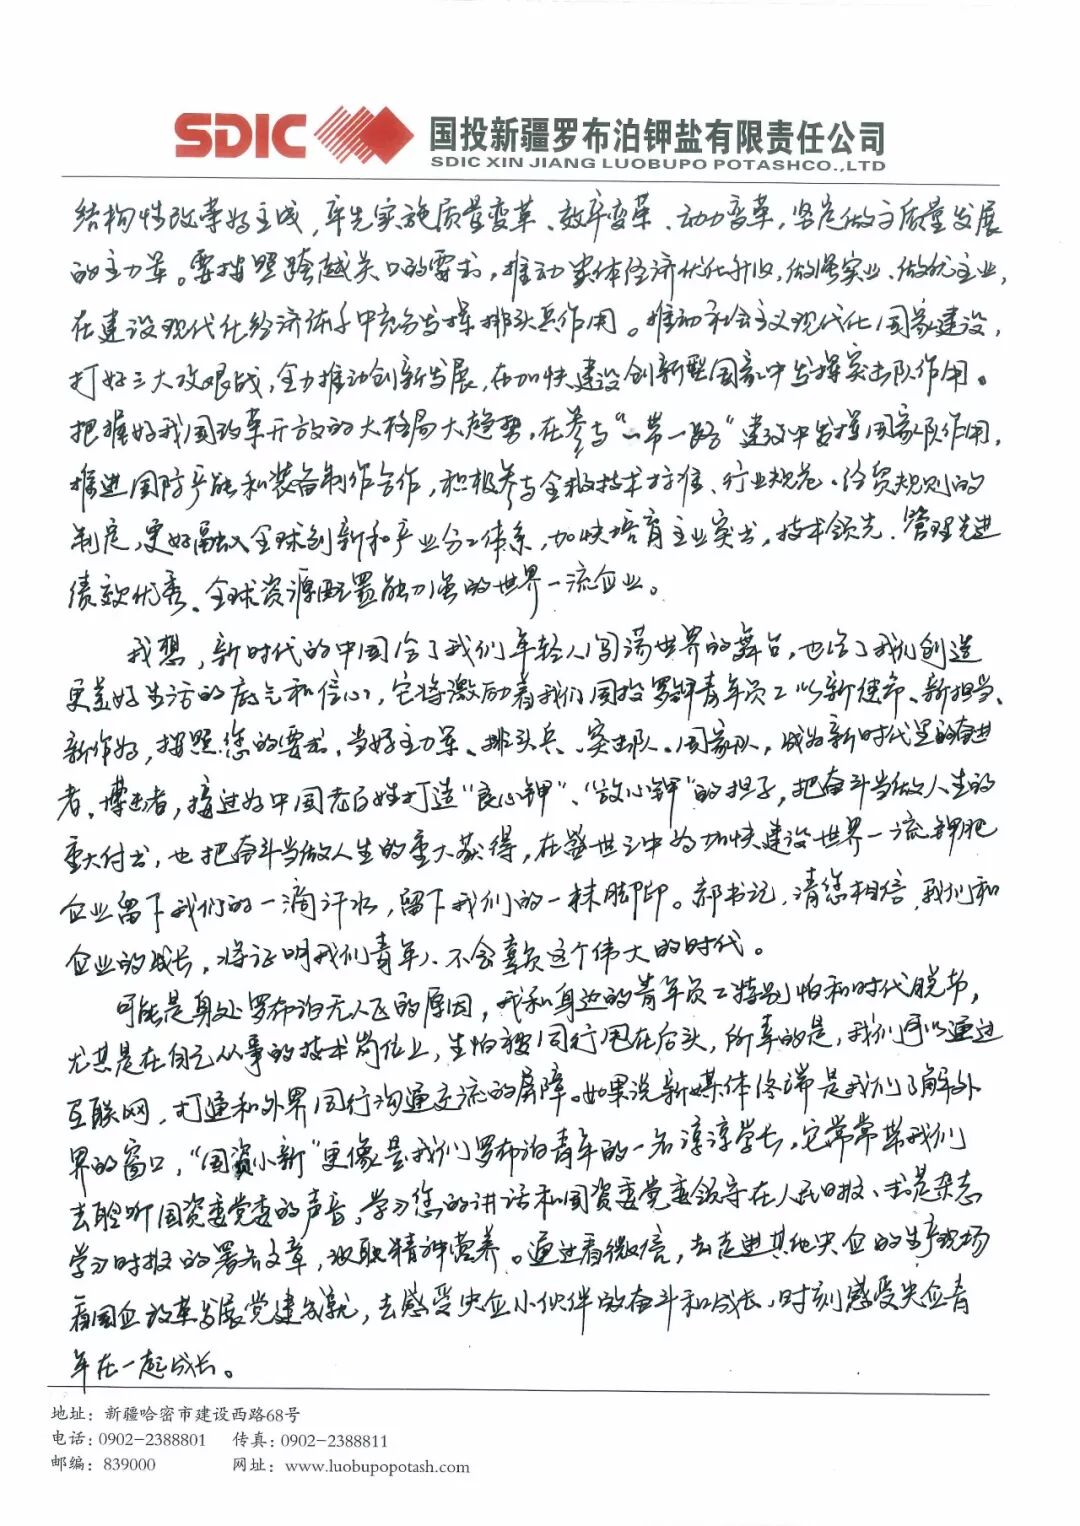 SDIC 国投新疆罗布泊钾盐有限责任公司
SDIC XIN JIANG LUOBUPO POTASHCO.,LTD
结构性改革好主线，率先实施质量变革、效率变革、动力变革，坚定做高质量发展
的主力军。要按照跨越关口的要求，推动实体经济优化升级，做强实业、做优主业，
在建设现代化经济体系中充分发挥排头兵作用。推动社会主义现代化国家建设，
打好三大攻艰战，全力推动创新发展，在加快建设创新型国家中发挥突击队作用。
把握好我国改革开放的大格局大趋势，在参与“一带一路”建设中发挥国家队作用，
推进国际产能和装备制作合作，积极参与全球技术标准、行业规范、经贸规则的
制定，更好融入全球创新和产业分工体系，加快培育主业突出，技术领先、管理先进
绩效优秀、全球资源配置能力强的世界一流企业。
我想，新时代的中国给了我们年轻人闯荡世界的舞台，也给了我们创造
更美好生活的底气和信心，它将激励着我们国投罗钾青年员工以新使命、新担当、
新作为，按照您的要求，当好主力军、排头兵、突击队、国家队，成为新时代里的奋进
者，搏击者，接过为中国老百姓打造“良心钾”、“放心钾”的担子，把奋斗当做人生的
重大付出，也把奋斗当做人生的重大获得，在盛世之中为加快建设世界一流钾肥
企业留下我们的一滴汗水，留下我们的一抹脚印。郝书记，请您相信，我们和
企业的成长，将证明我们青年人不会辜负这个伟大的时代。
可能是身处罗布泊无人区的原因，我和身边的青年员工特别怕和时代脱节，
尤其是在自己从事的技术岗位上，生怕被同行甩在后头，所幸的是，我们可以通过
互联网，打通和外界同行沟通交流的屏障。如果说新媒体终端是我们了解外
界的窗口，“国资小新”更像是我们罗布泊青年的一名淳淳学长，它常常带我们
去聆听国资委党委的声音，学习您的讲话和国资委党委领导在人民日报、求是杂志
学习时报的署名文章，汲取精神营养。通过看微信，去走进其他央企的生产现场
看国企改革发展党建成就，去感受央企小伙伴的奋斗和成长，时刻感受央企青
年在一起成长。
地址：新疆哈密市建设西路68号
电话：0902-2388801 传真：0902-2388811
邮编：839000 网址：www.luobupopotash.com